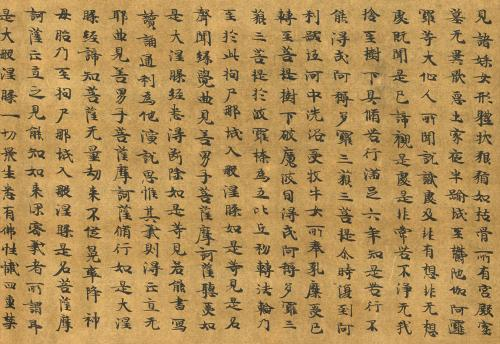 見諸婇女形體狀貌猶如枯骨所有宮殿塚
墓无異厭惡出家夜半踰城至欝陁伽阿羅
邏等大仙人所聞說識處及非有想非无想
處既聞是已諦觀是處是非常苦不淨无我
捨至樹下具脩苦行滿足六年知是苦行不
能得成阿耨多羅三藐三菩提尒時復到阿
利跋提河中洗浴受牧牛女所奉乳糜受已
轉至菩提樹下破魔波旬得成阿耨多羅三
藐三菩提於波羅㮈為五比丘初轉法輪乃
至於此拘尸那城入般涅槃如是等見是名
聲聞緣覺曲見善男子菩薩摩訶薩聽受如
是大涅槃經悉得斷除如是等見若能書寫
讀誦通利為他演說思惟其義則得正直无
耶曲見善男子菩薩摩訶薩脩行如是大涅
槃經諦知菩薩无量劫來不從兜率降神
母胎乃至拘尸那城入般涅槃是名菩薩摩
訶薩正直之見能知如來深密義者所謂即
是大般涅槃一切眾生悉有佛性懺四重禁